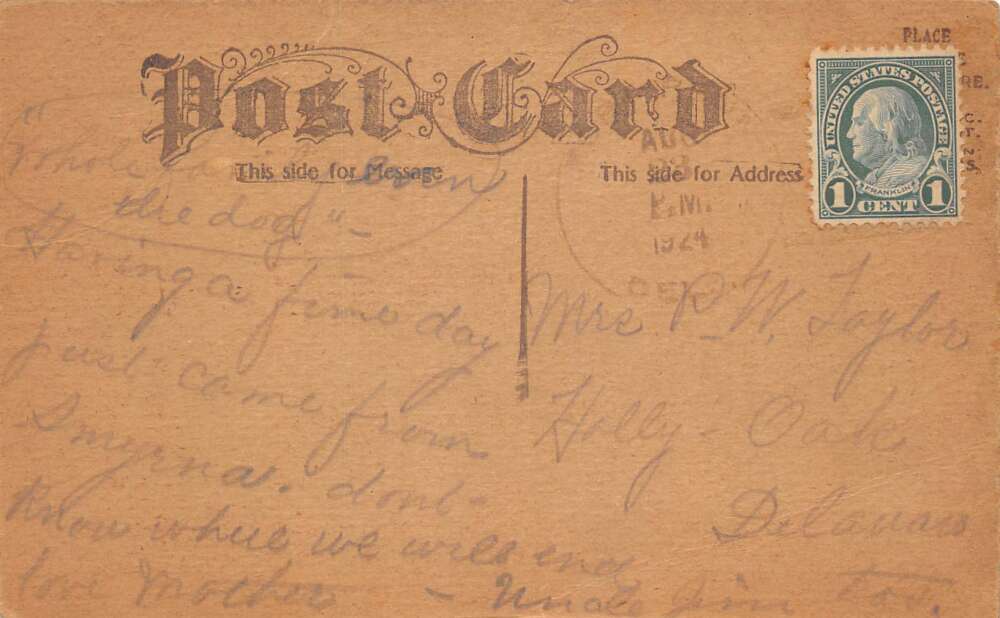 Post Card
This side for Message
This side for Address
PLACE
UNITED STATES POSTAGE
FRANKLIN
1 CENT 1
AUG
P.M.
1924
DEL
"Whole family even
the dog"
Having a fine day
just came from
Smyrna. dont
know where we will end
love Mother - Uncle Jim too.
Mrs P. W. Taylor
Holly-Oak
Delaware